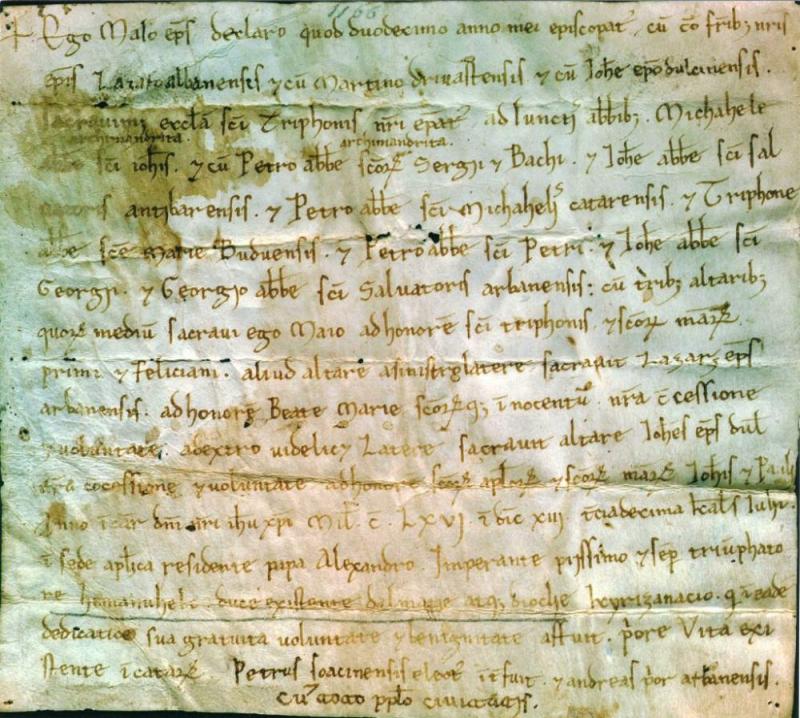 1166
Ego Maio ep̄s declaro quod duodecimo anno mei episcopat' cū cō fr̄ib; nr̄is
ep̄is Lazaro albanensis ⁊ cū Martino drivastensis ⁊ cū Ioh̄e ep̄o dulcinensis.
sacravim; eccl̄a sc̄i Triphonis nr̄i ep̄at' adiunctis abb̄ib; Michahele
archimandrita. archimandrita.
abb̄e sc̄i ioh̄is. ⁊ cū Petro abb̄e sc̄oꝝ Sergii ⁊ Bachi. ⁊ Ioh̄e abb̄e sc̄i sal
vatoris antibarensis. ⁊ Petro abb̄e sc̄i Michahelis catarensis. ⁊ Triphone
abb̄e sc̄e Marie Buduensis. ⁊ Petro abb̄e sc̄i Petri. ⁊ Ioh̄e abb̄e sc̄i
Georgii. ⁊ Georgio abb̄e sc̄i Salvatoris arbanensis: cū trib; altarib;
quoꝝ mediū sacravi ego Maio ad honorē sc̄i triphonis. ⁊ sc̄oꝝ mar̄ꝝ
primi ⁊ Feliciani. aliud altare a sinistro latere sacravit Lazar; ep̄s
arbanensis. ad honorē Beate Marie sc̄oꝝq; īnocentū. nr̄a c̄cessione
⁊ voluntate. a dextro videlic; Latere sacravit altare Ioh̄es ep̄s dul̄
nr̄a cōcessione ⁊ voluntate ad honorē sc̄oꝝ ap̄loꝝ ⁊ sc̄oꝝ mar̄ꝝ Ioh̄is ⁊ Pauli
Anno īcar̄ dn̄i nr̄i ih̄u xp̄i Mil̄. c̄. LXVI. īdic̄ XIII t̄ciadecima kal̄s Iulii.
ī sede ap̄lica residente papa Alexandro. Imperante piissimo ⁊ sēp triūphato
re hemanuhele. duce existente dalmatie atq; dioclie kyrizanacio. q̄ ī eadē
dedicatiōe sua gratuita voluntate ⁊ benignitate affuit. p̄ore Vita exi
stente ī cataꝝ. Petrus soacinensis elect' īt̄fuit. ⁊ andreas p̄or arbanensis.
Cū toto pp̄lo civitatis.